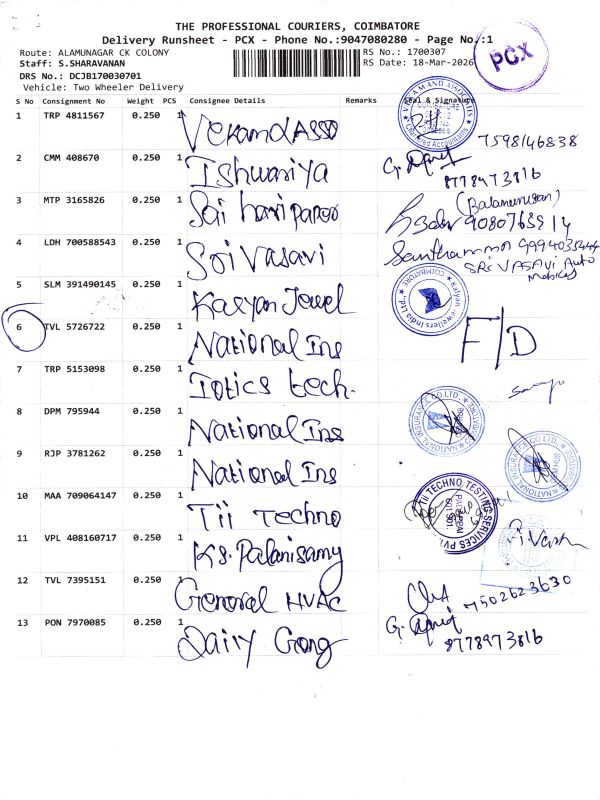 THE PROFESSIONAL COURIERS, COIMBATORE
Delivery Runsheet - PCX - Phone No.:9047080280 - Page No.:1
PCX
Route: ALAMUNAGAR CK COLONY
RS No.: 1700307
Staff: S.SHARAVANAN
RS Date: 18-Mar-2026
DRS No.: DCJB170030701
Vehicle: Two Wheeler Delivery
S No Consignment No Weight PCS Consignee Details Remarks Seal & Signature
1 TRP 4811567 0.250 1 VekamdAsso 7598146838
2 CMM 408670 0.250 1 Ishwariya 8778973816
3 MTP 3165826 0.250 1 Sai hari paper (Balamurugan) 9080763914
4 LDH 700588543 0.250 1 Sri Vasavi 9994035444
SRi VASAVi Auto Mobiles
5 SLM 391490145 0.250 1 Kalyan Jewel Kalyan Jewellers India Ltd. COIMBATORE
6 TVL 5726722 0.250 1 National Ins F/D
7 TRP 5153098 0.250 1 Iotics tech.
8 DPM 795944 0.250 1 National Ins NATIONAL INSURANCE CO LTD.
9 RJP 3781262 0.250 1 National Ins NATIONAL INSURANCE CO LTD.
10 MAA 709064147 0.250 1 Tii Techno Tii TECHNO TESTING SERVICES PVT
11 VPL 408160717 0.250 1 K.S. Palanisamy
12 TVL 7395151 0.250 1 General HVAC 7502623630
13 PON 7970085 0.250 1 Dairy Gong 8778973816